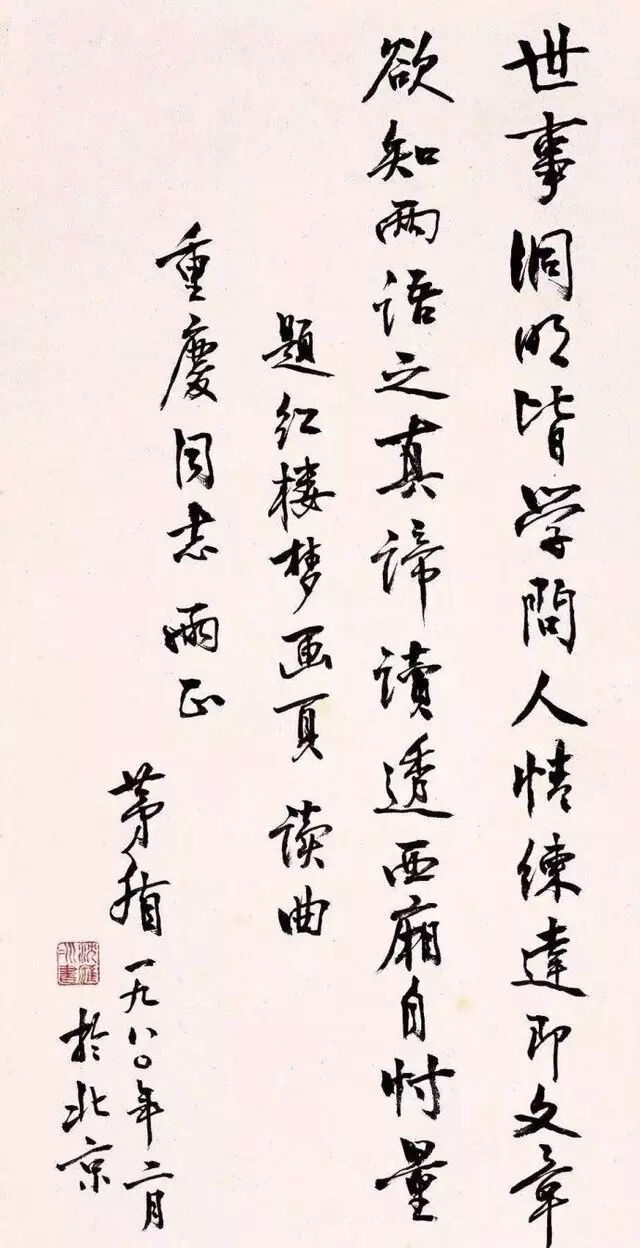 世事洞明皆学問人情練達即文章
欲知两语之真谛读透西廂自忖量
题红楼梦画页 读曲
重慶同志两正
茅盾一九八〇年二月
於北京